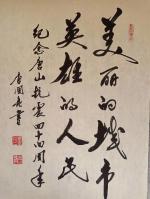 美丽的城市
英雄的人民
纪念唐山抗震四十周年
李国
书